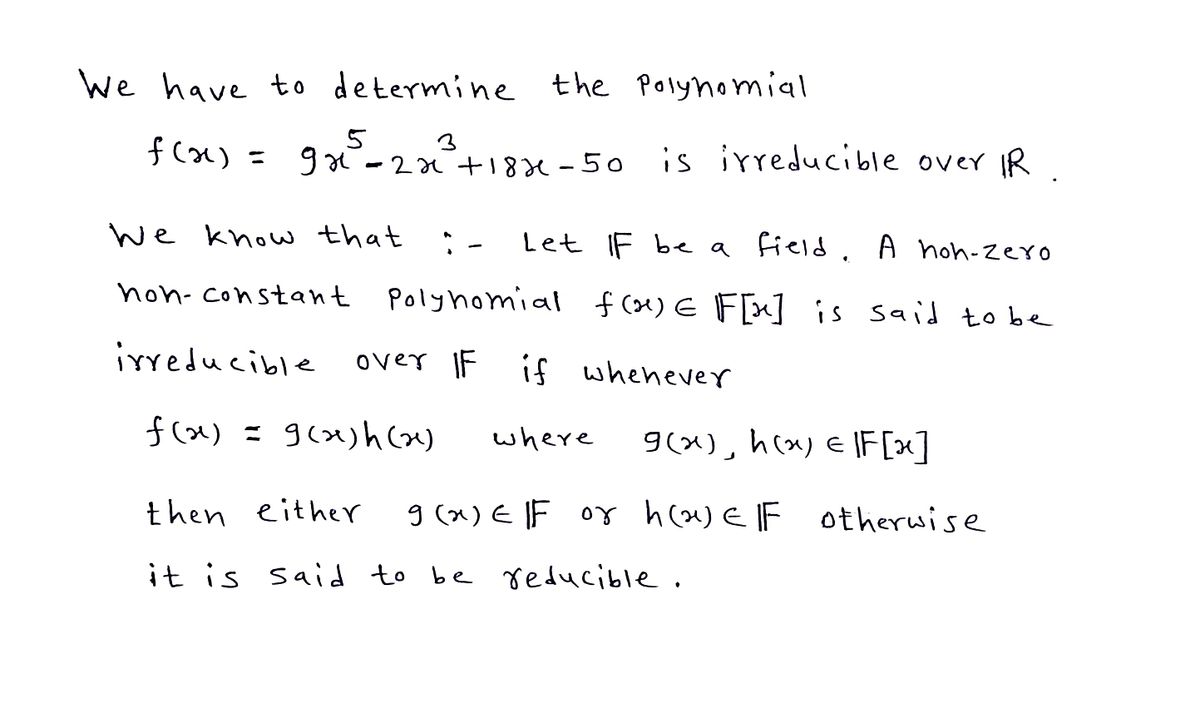 We have to determine the Polynomial
f(x) = 9x⁵-2x³+18x-50 is irreducible over ℝ.
We know that :- Let 𝔽 be a field. A non-zero
non-constant Polynomial f(x) ∈ 𝔽[x] is said to be
irreducible over 𝔽 if whenever
f(x) = g(x)h(x) where g(x), h(x) ∈ 𝔽[x]
then either g(x) ∈ 𝔽 or h(x) ∈ 𝔽 otherwise
it is said to be reducible.